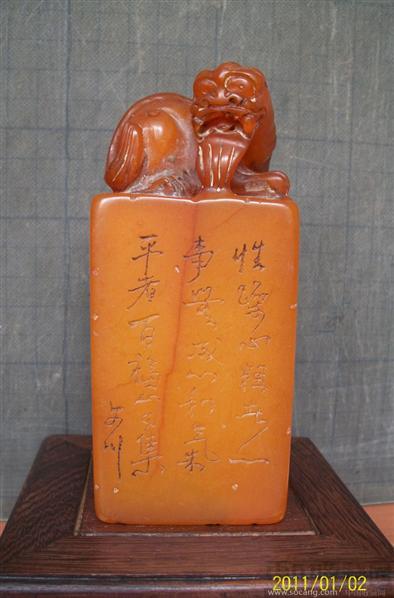 性躁心粗者一
事無成心和氣
平者百福自集
www.socang.com
2011/01/02